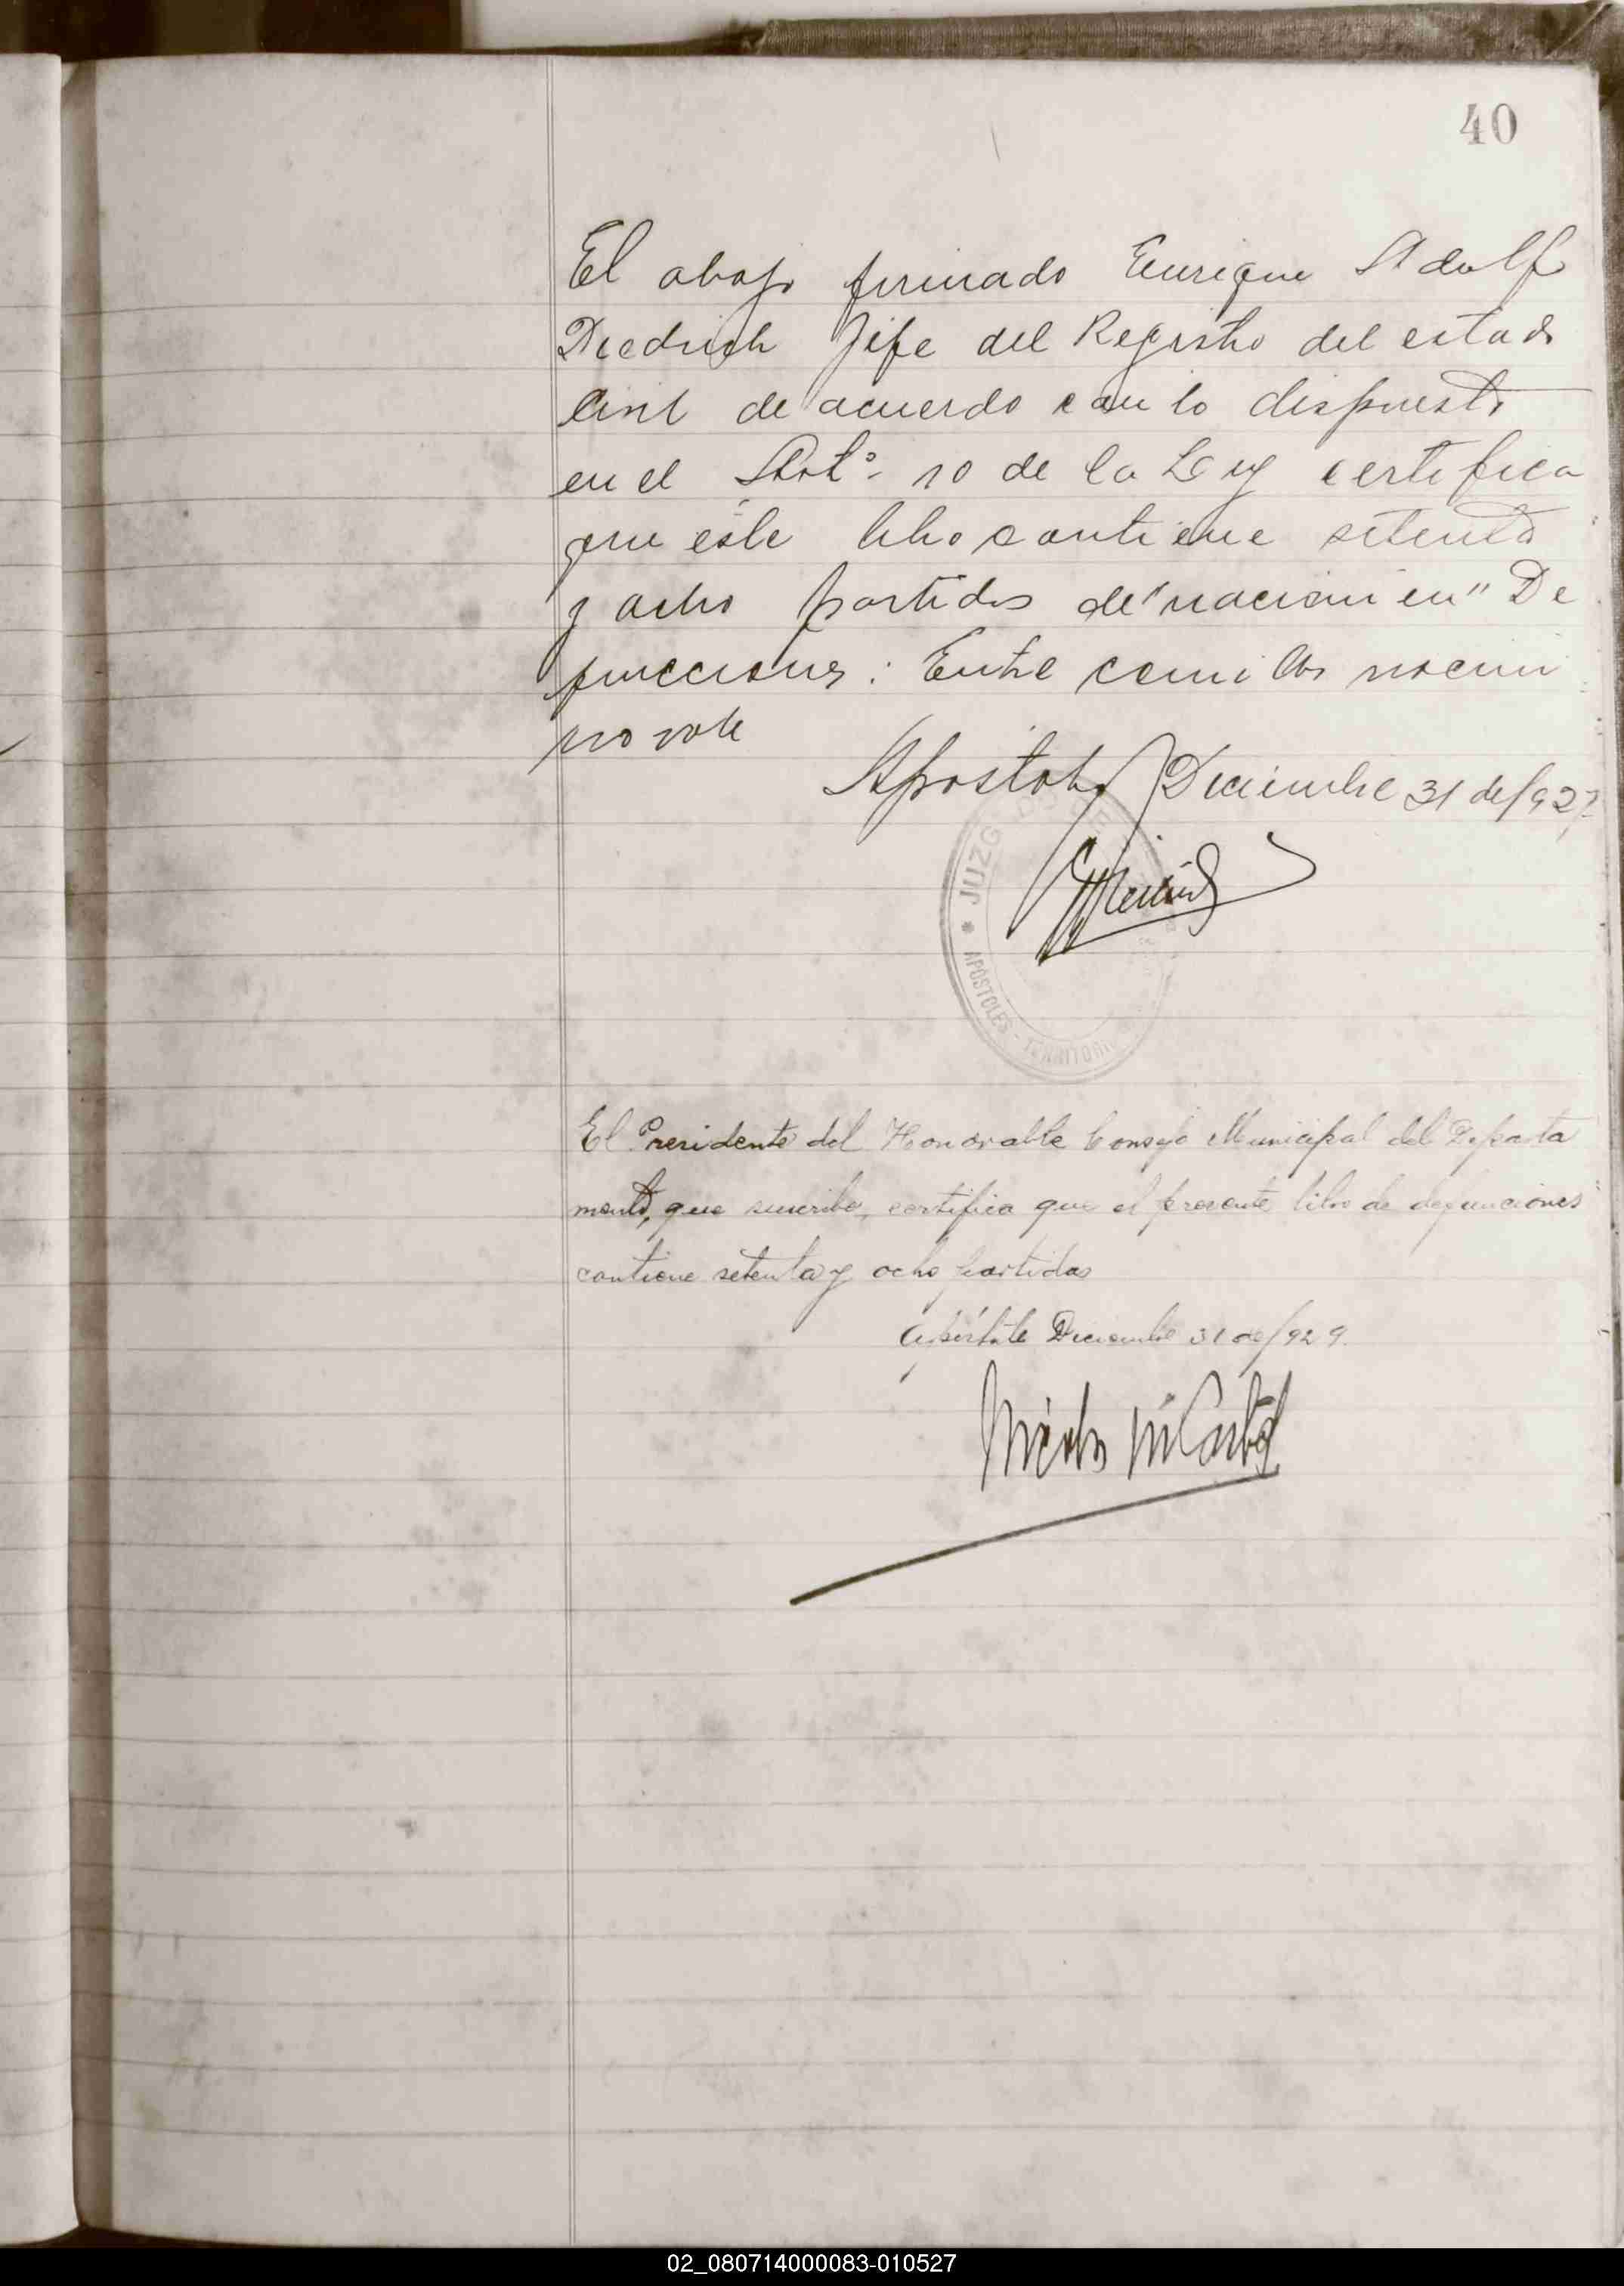 40
El abajo firmado Enrique Adolfo
Diedrich Jefe del Registro del estado
Civil de acuerdo con lo dispuesto
en el Artº 10 de la Ley certifica
que este libro contiene setenta
y ocho partidas de "nacimien" De
funciones: Entre comillas nacimi
no vale
Apostoles Diciembre 31 de/92
JUZG
APOSTOLES - TERRITORI
El Presidente del Honorable Consejo Municipal del Departa
mento, que suscribe, certifica que el presente libro de defunciones
contiene setenta y ocho partidas
Diciembre 31 de/929.
02_080714000083-010527